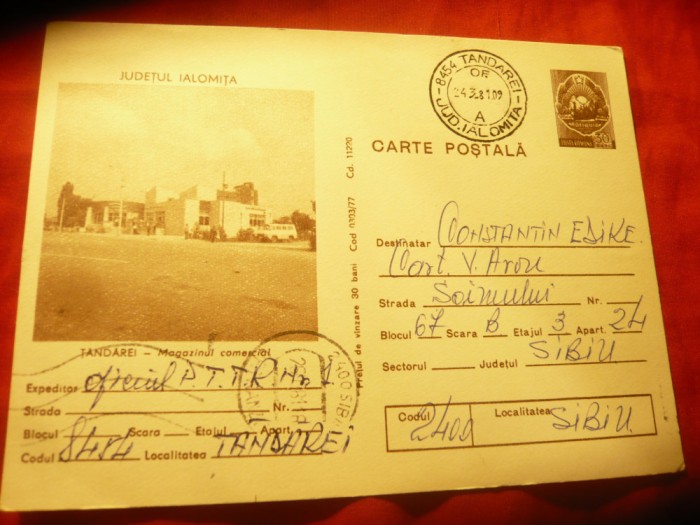 JUDEȚUL IALOMIȚA
ȚĂNDĂREI — Magazinul comercial
Expeditor oficiul P.T.T.R. Nr 1
Strada Nr.
Blocul Scara Etajul Apart.
Codul 8454 Localitatea TANDAREI
Prețul de vînzare 30 bani Cod 0103/77 Cd. 11220
8454 TANDAREI
OF
24.3.81.09
A
JUD. IALOMITA
CARTE POȘTALĂ
50
Destinatar CONSTANTIN EDIKE
Cart. V. Aron
Strada Soimului Nr.
Blocul 67 Scara B Etajul 3 Apart. 24
Sectorul Județul SIBIU
Codul 2400 Localitatea SIBIU
2400 SIB